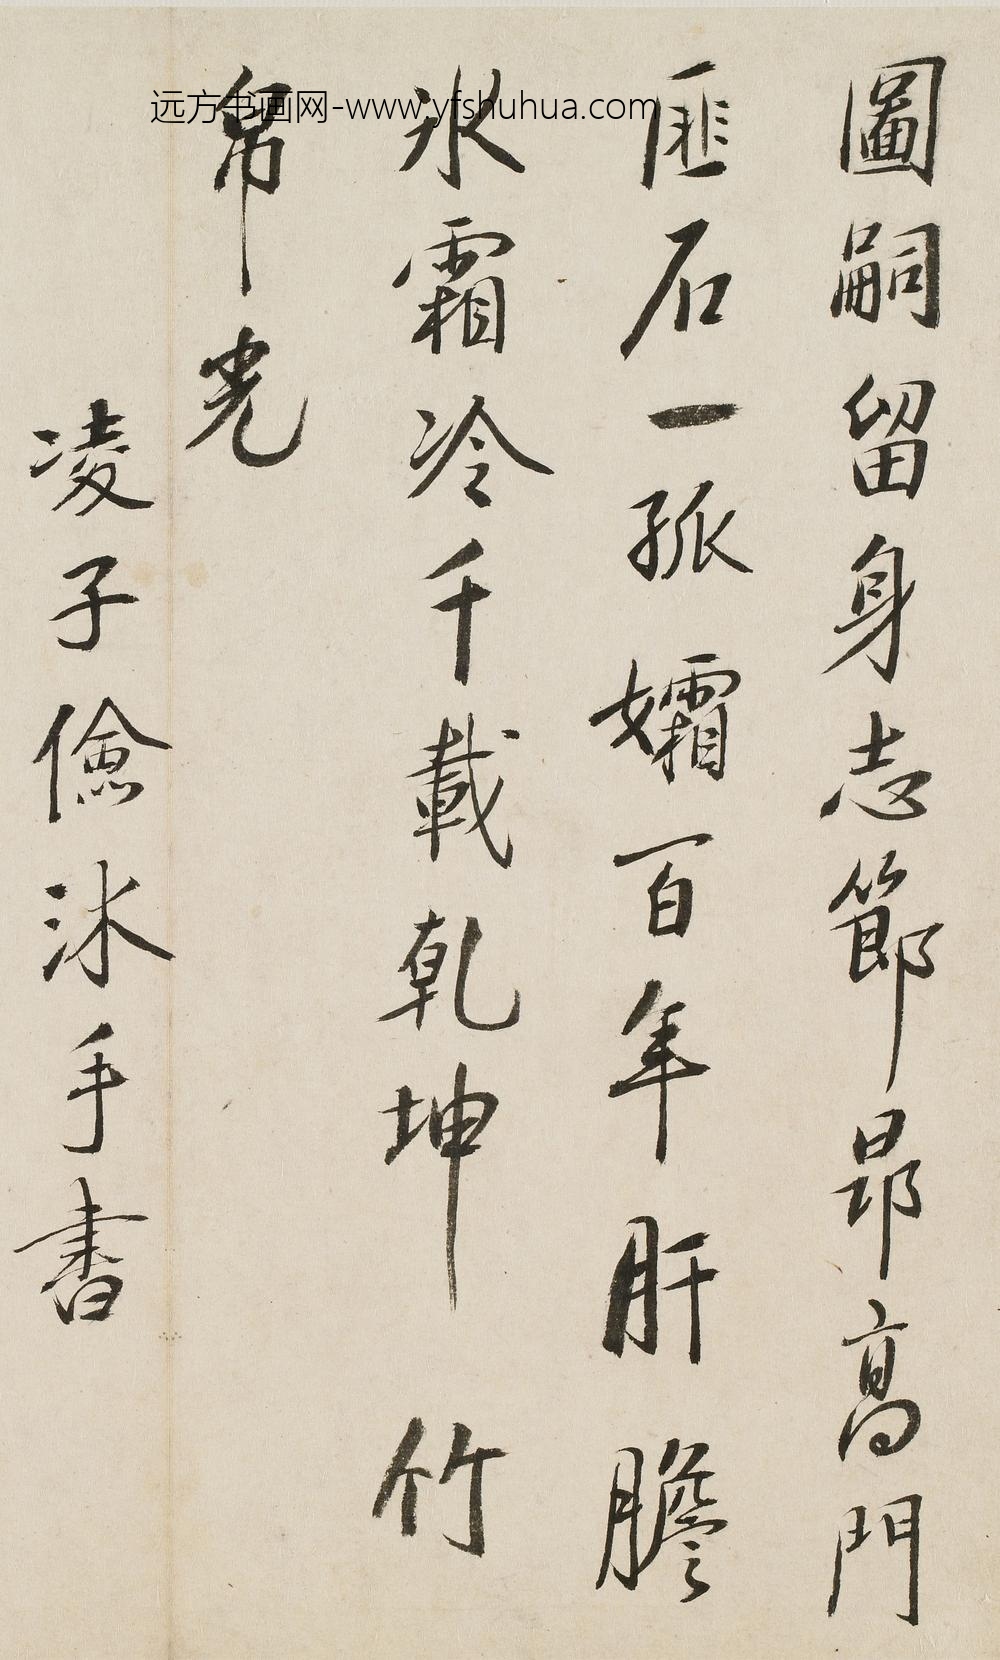 圖嗣留身志節昂高門
匪石一孤孀百年肝膽
冰霜冷千載乾坤竹
帛光
凌子儉冰手書
远方书画网-www.yfshuhua.com